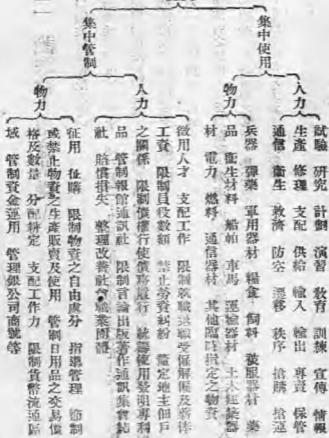 集中使用
人力
試驗 研究 計劃 演習 敎育 訓練 宣傳 情報
生產 修理 支配 供給 輸入 輸出 專賣 保管
通信 衞生 救濟 防空 遷移 秩序 搶購 搶運
物力
兵器 彈藥 軍用器材 糧食 飼料 被服器材 藥
品 衞生材料 船舶 車馬 運輸器材 土木建築器
材 電力 燃料 通信器材 其他臨時指定之物資
集中管制
人力
徵用人才 支配工作 限制就職退職受僱解僱及薪俸
工資 限制員役數額 禁止勞資糾紛 釐定地主佃戶
之關係 限制債權行使債務履行 統籌使用發明專利
品 管制報館通訊社 限制言論出版著作通訊集會結
社 賠償損失 整理改善社會職業團體
物力
徵用 徵購 限制物資之自由處分 指導管理 節制
或禁止物資之生產販賣及使用 管制日用品之交易價
格及數量 分配耕定 支配工作力 限制貨幣流通區
域 管制資金運用 管理銀公司商號等